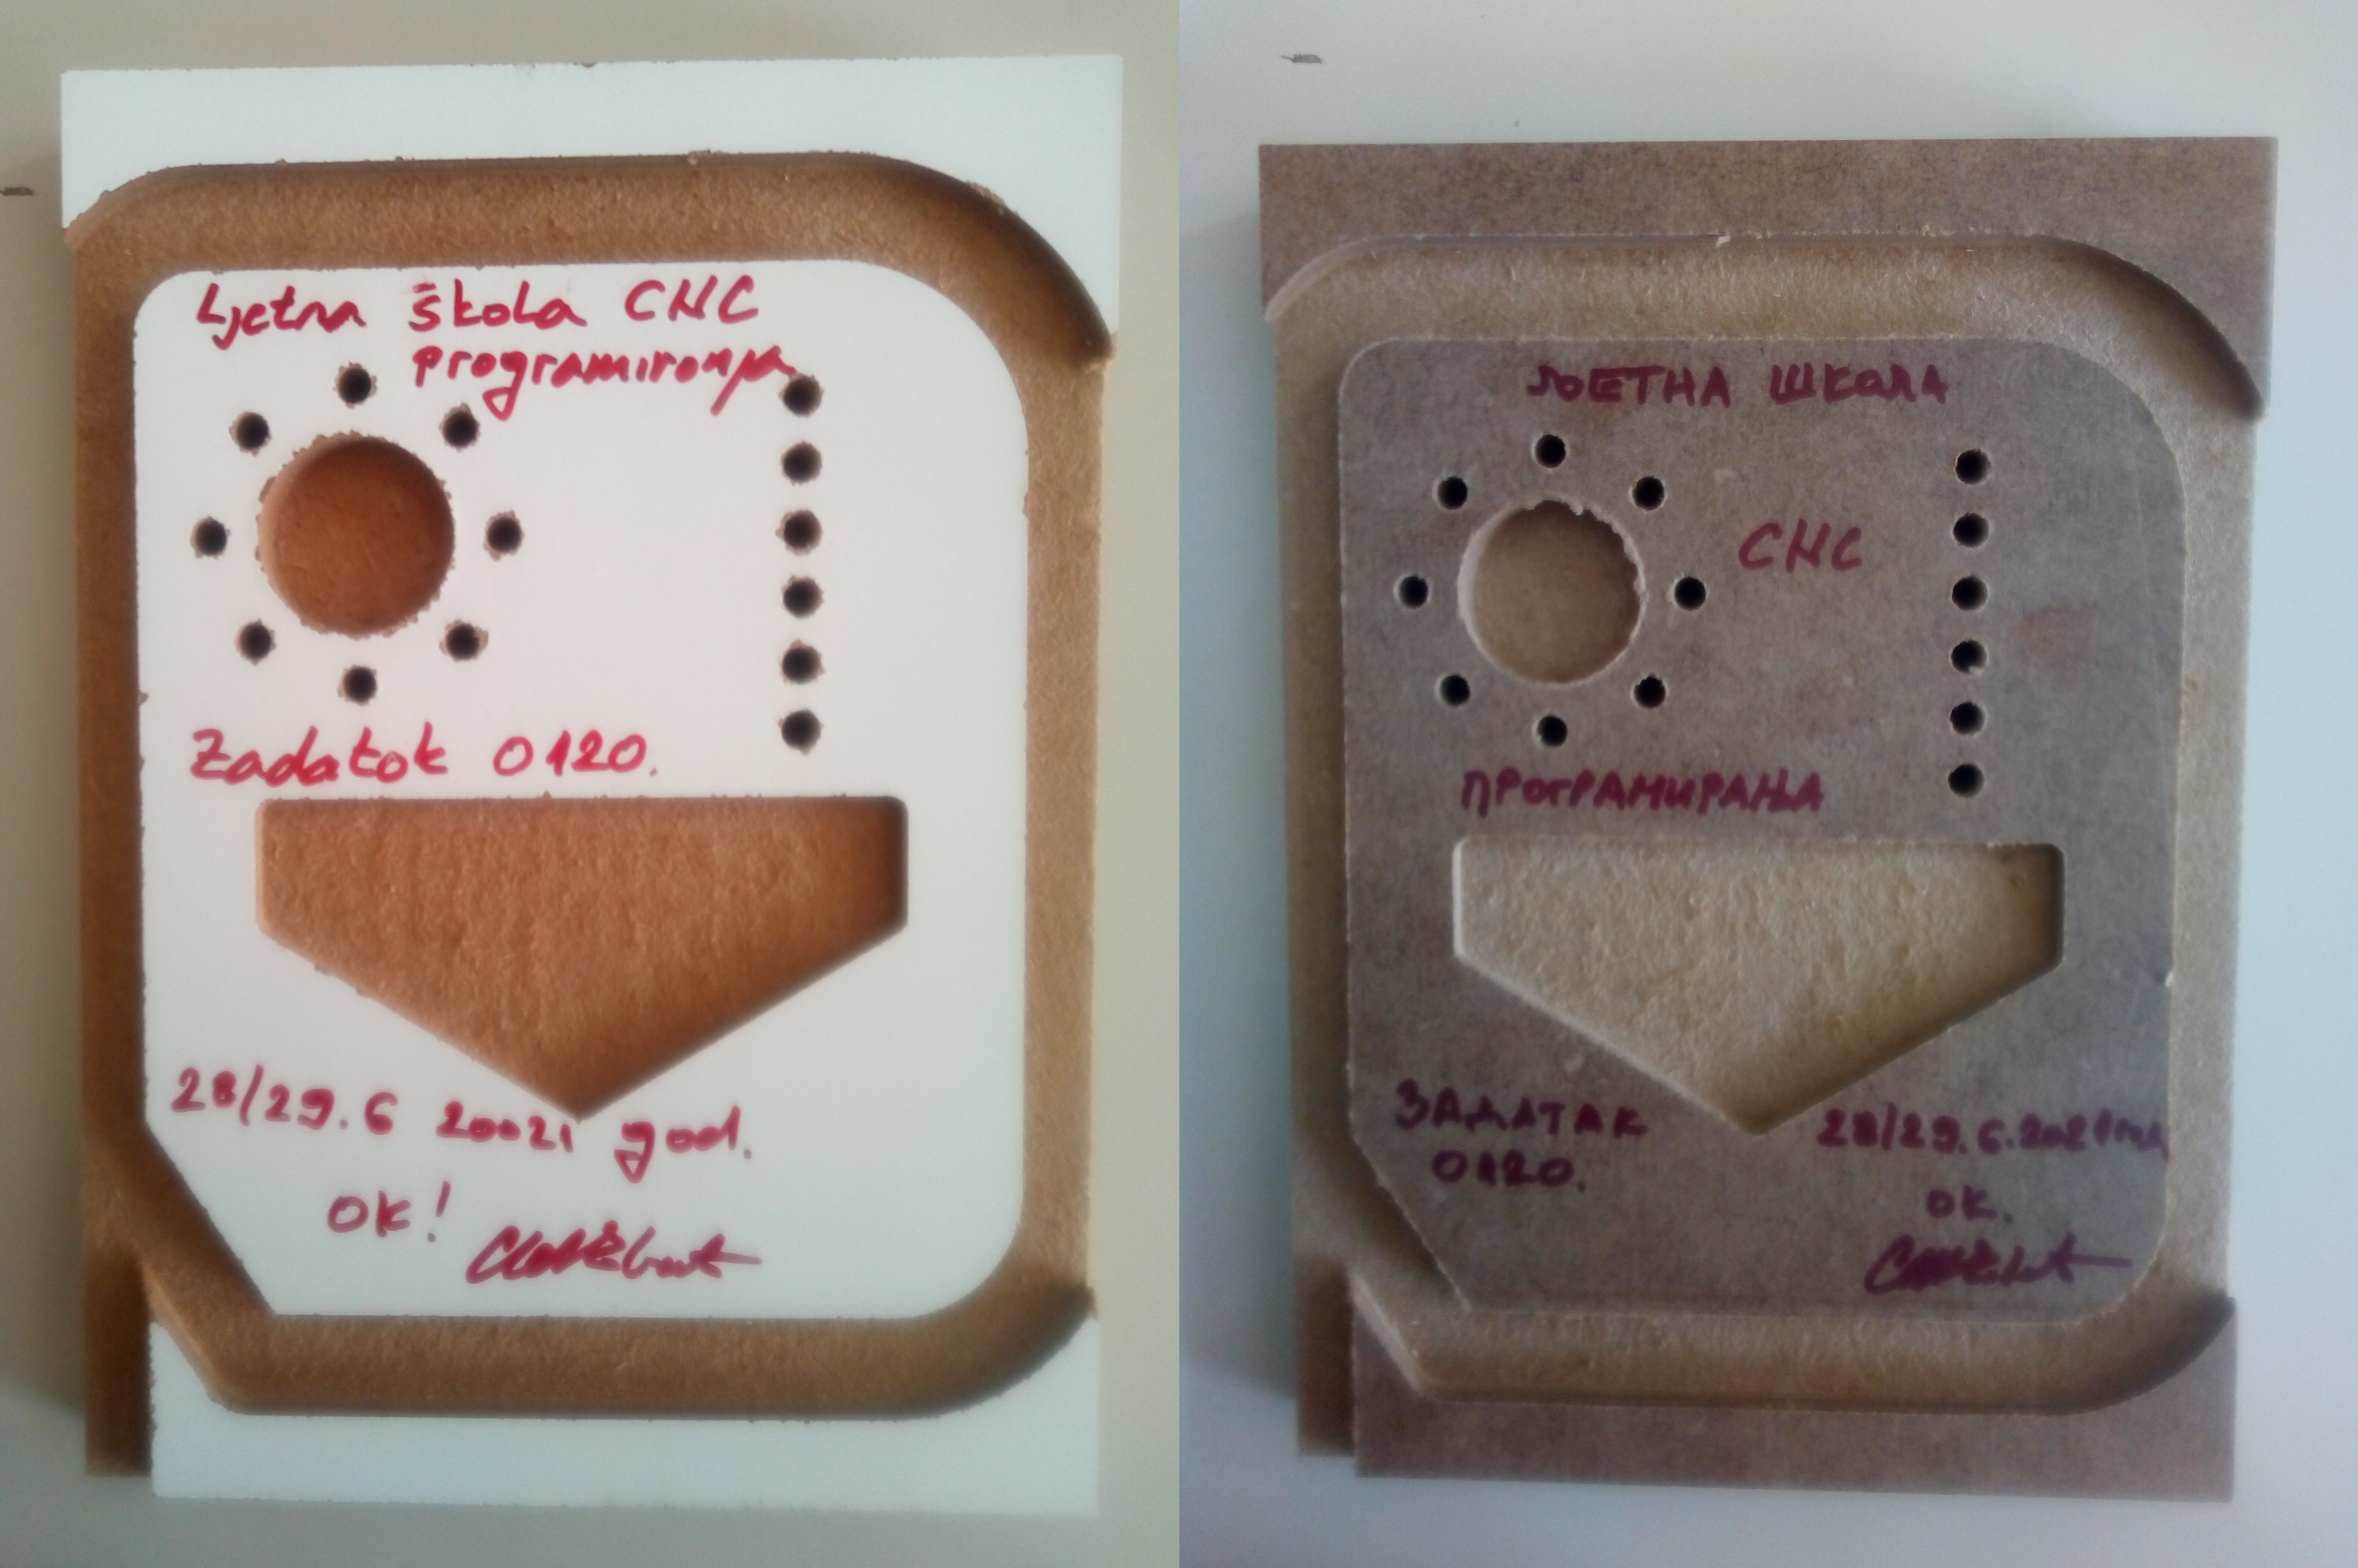 Ljetna škola CNC
programiranja
Zadatak 0120.
28/29.6 20021 god.
OK!
ЉЕТНА ШКОЛА
CNC
ПРОГРАМИРАЊА
ЗАДАТАК
0120.
28/29.6.2021
OK.